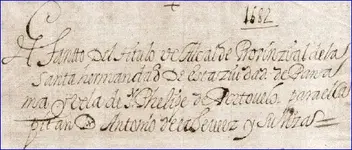 +
1682
Al Santto Del titulo de Alcalde Provinzial de la
Santa hermandad De esta ziudad de Pana
ma y de la de S. Phelipe de Portovelo, para el Ca
pitan D. Antonio de y Su hzas